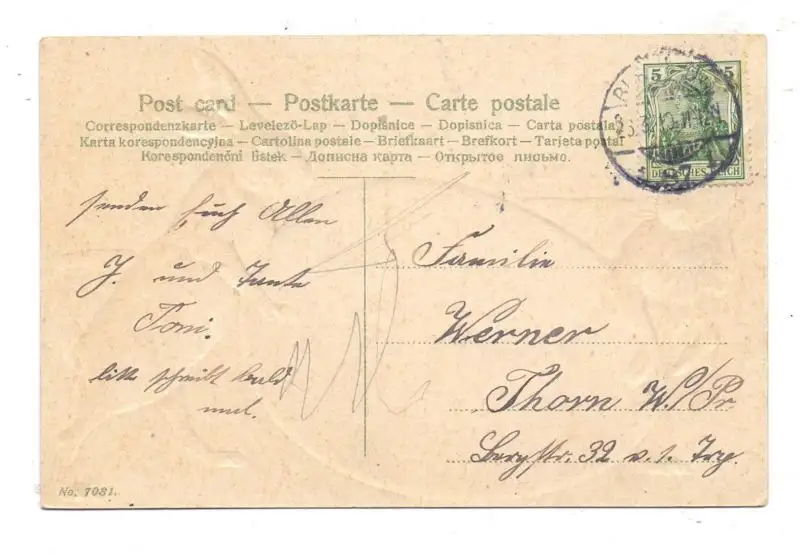 Post card — Postkarte — Carte postale
Correspondenzkarte — Levelező-Lap — Dopisnice — Dopisnica — Carta postala
Karta korespondencyjna — Cartolina postale — Briefkaart — Brefkort — Tarjeta postal
Korespondenční lístek — Дописна карта — Открытое письмо.
5 5
DEUTSCHES REICH
senden Euch Allen
J. und Tante
Toni.
bitte schreibt bald
mal.
Familie
Werner
Thorn W./Pr.
Bergstr. 32 v. 1. Trp.
No. 7031.